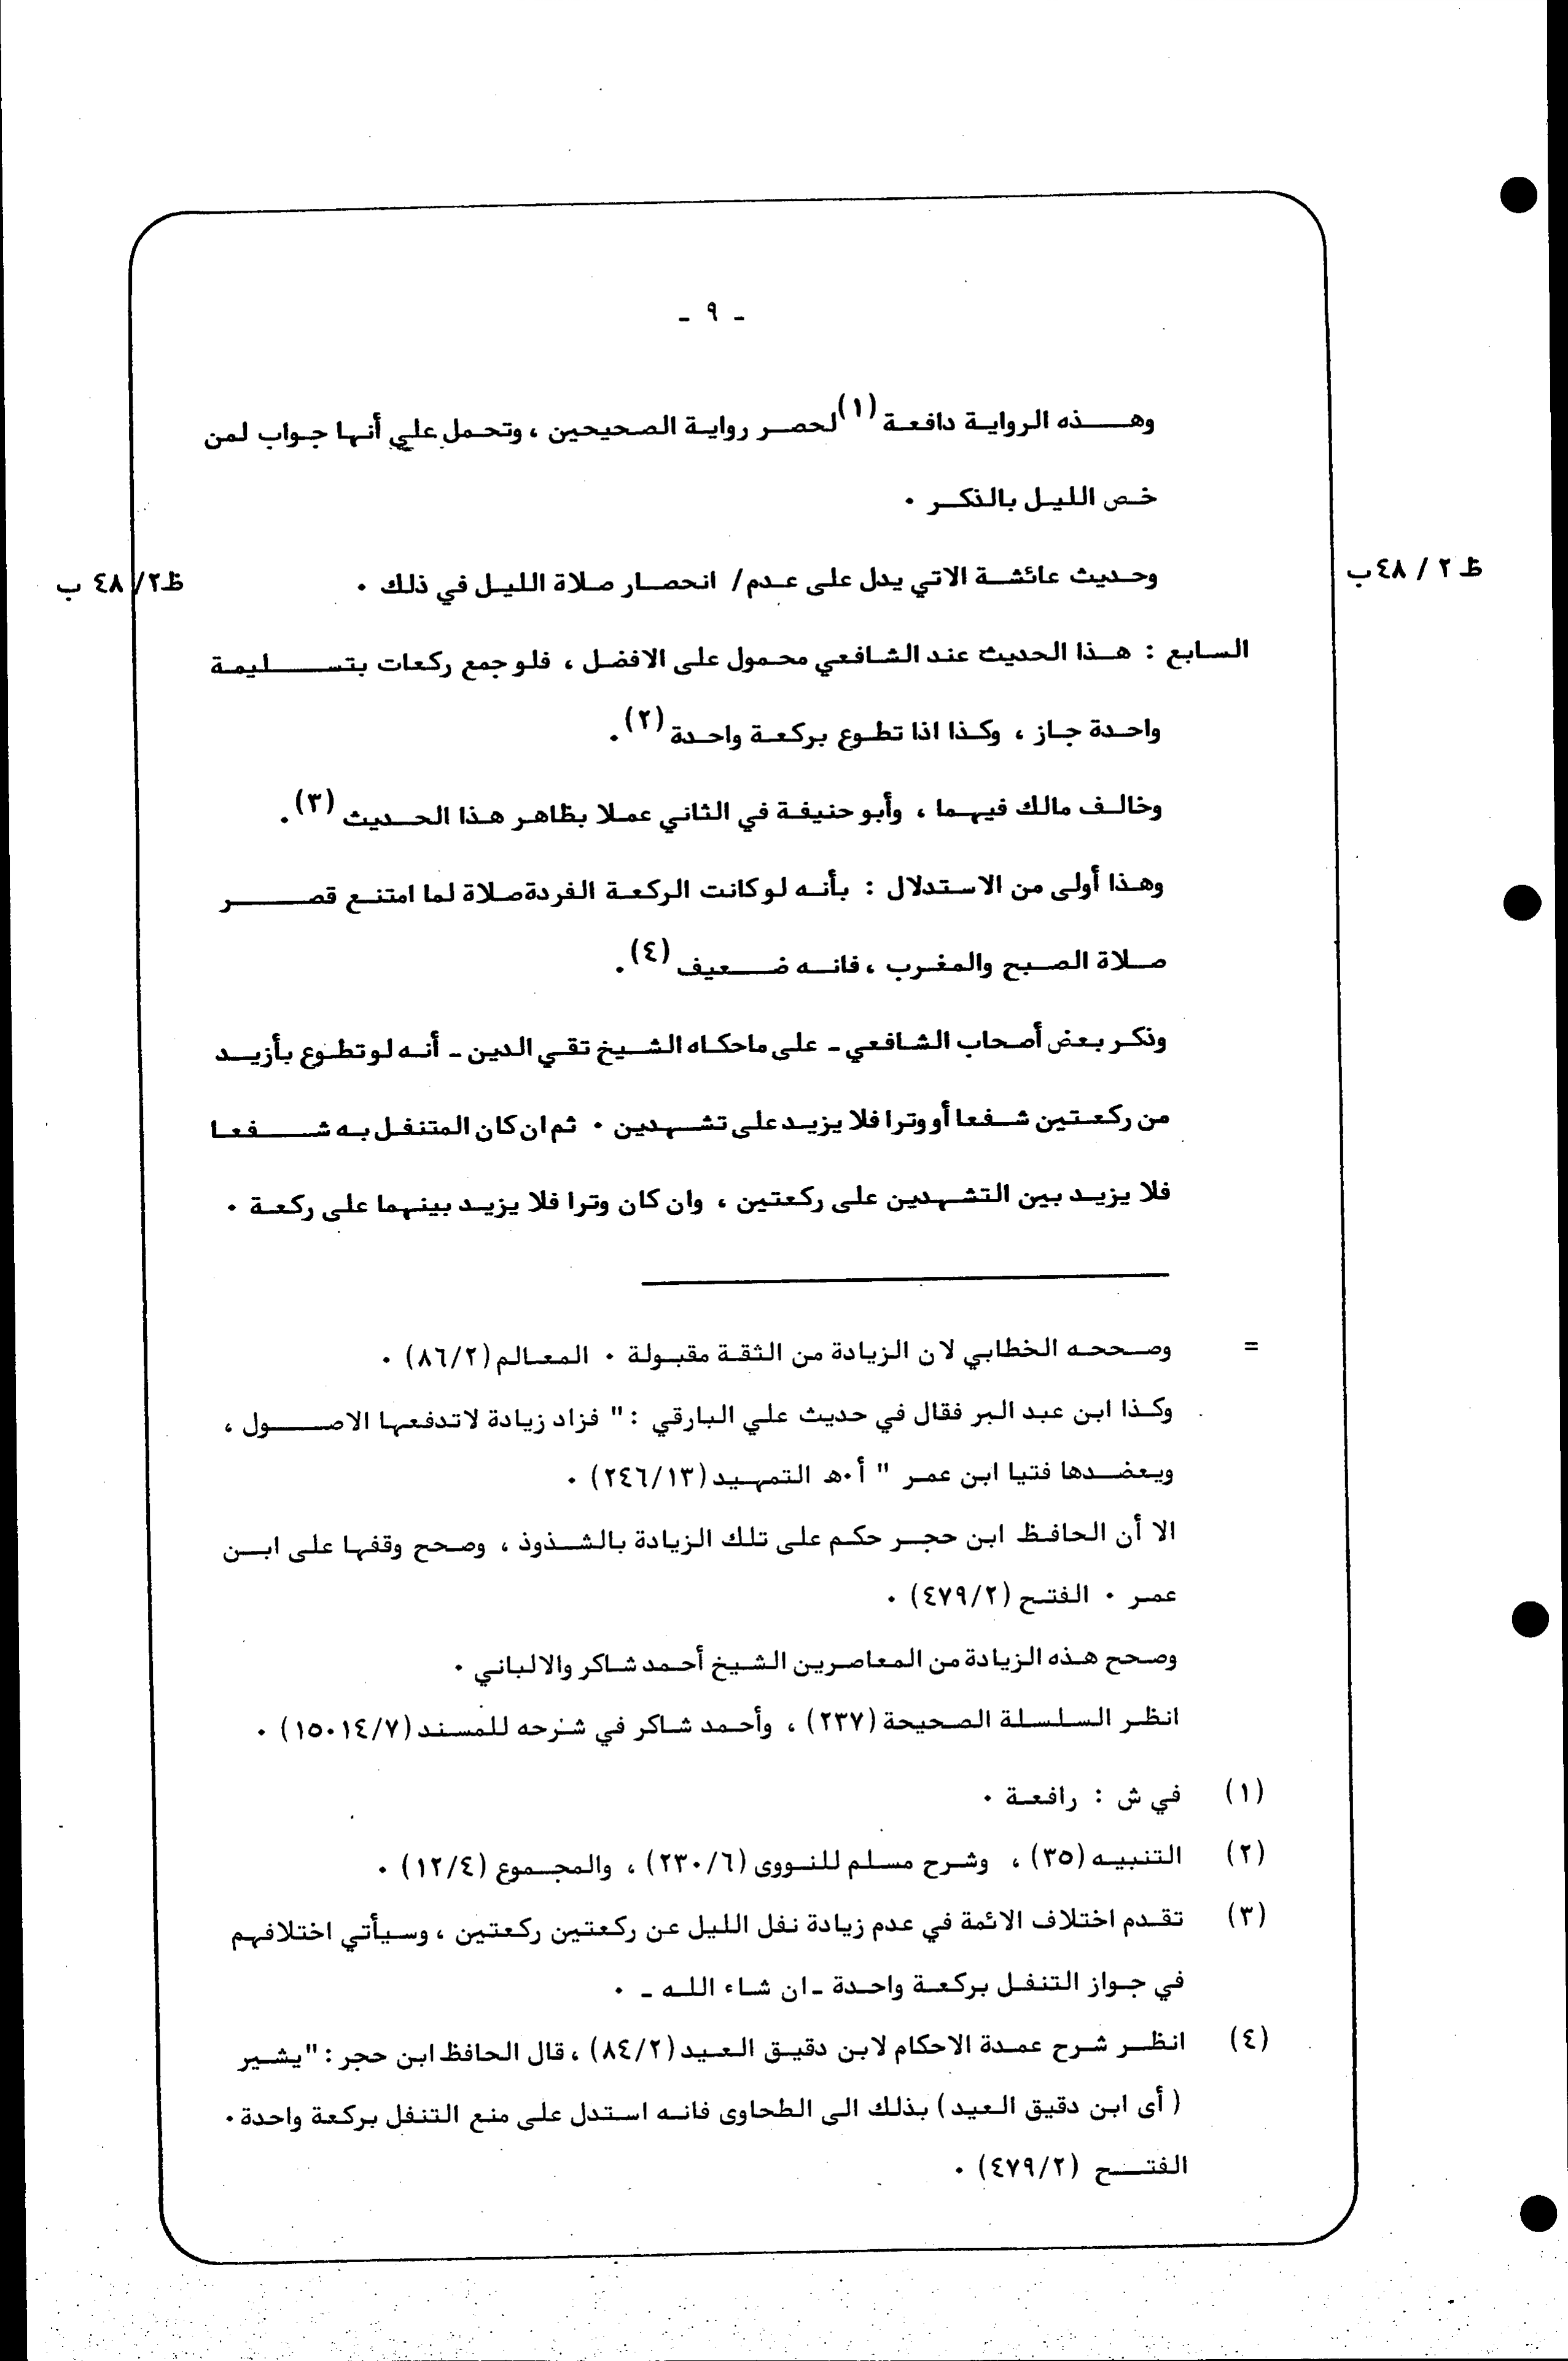 - ٩ -
وهذه الرواية دافعة (١) لحصر رواية الصحيحين ، وتحمل علي أنها جواب لمن
خص الليل بالذكر ٠
ظ ٢ / ٤٨ ب
وحديث عائشة الاتي يدل على عدم/ انحصار صلاة الليل في ذلك ٠
ظ٢/ ٤٨ ب
السابع : هذا الحديث عند الشافعي محمول على الافضل ، فلو جمع ركعات بتسليمة
واحدة جاز ، وكذا اذا تطوع بركعة واحدة (٢) .
وخالف مالك فيهما ، وأبو حنيفة في الثاني عملا بظاهر هذا الحديث (٣) .
وهذا أولى من الاستدلال : بأنه لو كانت الركعة الفردة صلاة لما امتنع قصر
صلاة الصبح والمغرب ، فانه ضعيف (٤) .
وذكر بعض أصحاب الشافعي - على ماحكاه الشيخ تقي الدين - أنه لو تطوع بأزيد
من ركعتين شفعا أو وترا فلا يزيد على تشهدين ٠ ثم ان كان المتنفل به شفعا
فلا يزيد بين التشهدين على ركعتين ، وان كان وترا فلا يزيد بينهما على ركعة ٠
= وصححه الخطابي لان الزيادة من الثقة مقبولة ٠ المعالم (٨٦/٢) ٠
وكذا ابن عبد البر فقال في حديث علي البارقي : " فزاد زيادة لاتدفعها الاصول ،
ويعضدها فتيا ابن عمر " أ٠ه التمهيد (٢٤٦/١٣) ٠
الا أن الحافظ ابن حجر حكم على تلك الزيادة بالشذوذ ، وصحح وقفها على ابن
عمر ٠ الفتح (٤٧٩/٢) ٠
وصحح هذه الزيادة من المعاصرين الشيخ أحمد شاكر والالباني ٠
انظر السلسلة الصحيحة (٢٣٧) ، وأحمد شاكر في شرحه للمسند (١٥٠١٤/٧) ٠
(١) في ش : رافعة ٠
(٢) التنبيه (٣٥) ، وشرح مسلم للنووى (٢٣٠/٦) ، والمجموع (١٢/٤) ٠
(٣) تقدم اختلاف الائمة في عدم زيادة نفل الليل عن ركعتين ركعتين ، وسيأتي اختلافهم
في جواز التنفل بركعة واحدة - ان شاء الله - ٠
(٤) انظر شرح عمدة الاحكام لابن دقيق العيد (٨٤/٢) ، قال الحافظ ابن حجر : "يشير
( أى ابن دقيق العيد ) بذلك الى الطحاوى فانه استدل على منع التنفل بركعة واحدة ٠
الفتح (٤٧٩/٢) ٠